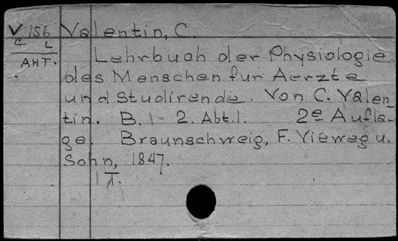 V 156 Valentin, C.
C L
AHT.
Lehrbuch der Physiologie
des Menschen fur Aerzte
und Studirende. Von C. Valen-
tin. B. 1- 2. Abt. 1. 2e Aufla-
ge. Braunschweig, F. Vieweg u.
Sohn, 1847.
1T.